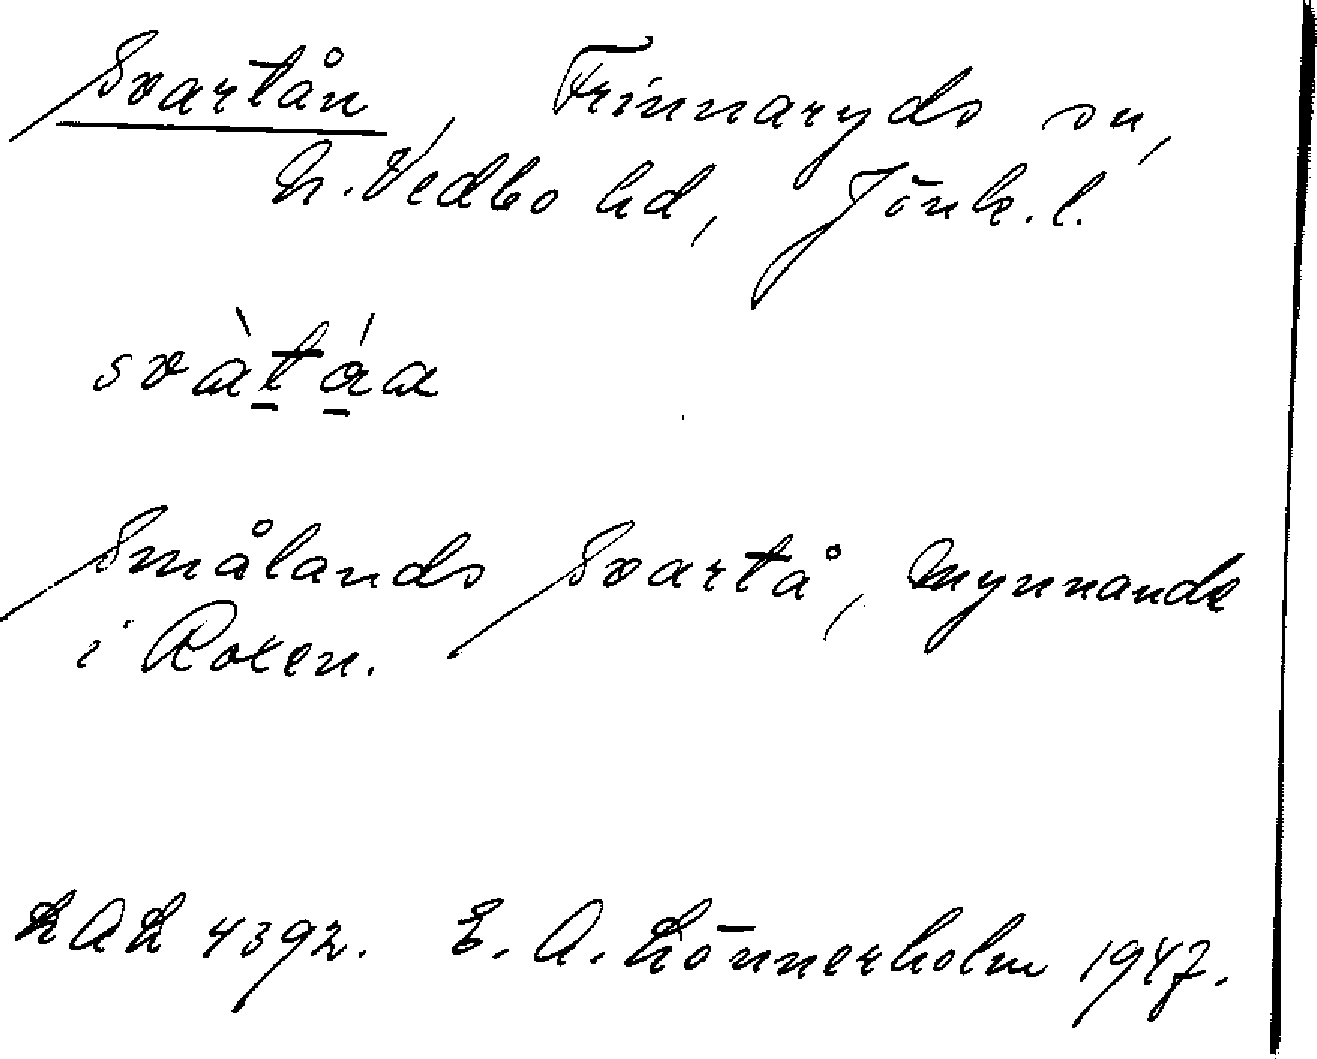 Svartån, Frinnaryds sn,
N. Vedbo hd, Jönk. l.
svàt̲á̲a
Smålands Svartå, mynnande
i Roxen.
LAL 4392. E. A. Lönnerholm 1947.